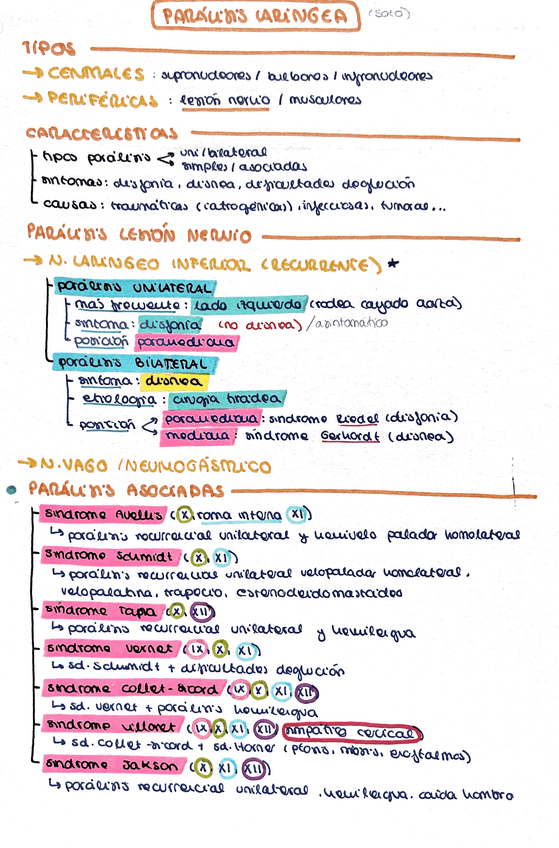 PARÁLISIS LARÍNGEA (SOTO)
TIPOS
→ CENTRALES : supranucleares / bulbares / infranucleares
→ PERIFÉRICAS : lesión nervio / musculares
CARACTERÍSTICAS
tipos parálisis < uni/bilateral
simples / asociadas
síntomas: disfonía, disnea, dificultades deglución
causas: traumáticas (iatrogénicas), infecciosas, tumoral...
PARÁLISIS LESIÓN NERVIO
→ N. LARÍNGEO INFERIOR (RECURRENTE) *
parálisis UNILATERAL
más frecuente: lado izquierdo (rodea cayado aorta)
síntoma: disfonía (no disnea) / asintomático
posición paramediana
parálisis BILATERAL
síntoma: disnea
etiología: cirugía tiroidea
posición < paramediana: síndrome Riedel (disfonía)
mediana: síndrome Gerhardt (disnea)
→ N. VAGO / NEUMOGÁSTRICO
PARÁLISIS ASOCIADAS
síndrome Avellis (X, rama interna XI)
↳ parálisis recurrencial unilateral y hemivelo paladar homolateral
síndrome Schmidt (X, XI)
↳ parálisis recurrencial unilateral velopaladar homolateral,
velopalatina, trapecio, esternocleidomastoideo
síndrome Tapia (X, XII)
↳ parálisis recurrencial unilateral y hemilengua
síndrome Vernet (IX, X, XI)
↳ sd. Schmidt + dificultades deglución
síndrome Collet-Sicard (IX, X, XI, XII)
↳ sd. Vernet + parálisis hemilengua
síndrome Villaret (IX, X, XI, XII) simpático cervical
↳ sd. Collet-Sicard + sd. Horner (ptosis, miosis, exoftalmos)
síndrome Jakson (X, XI, XII)
↳ parálisis recurrencial unilateral, hemilengua, caída hombro